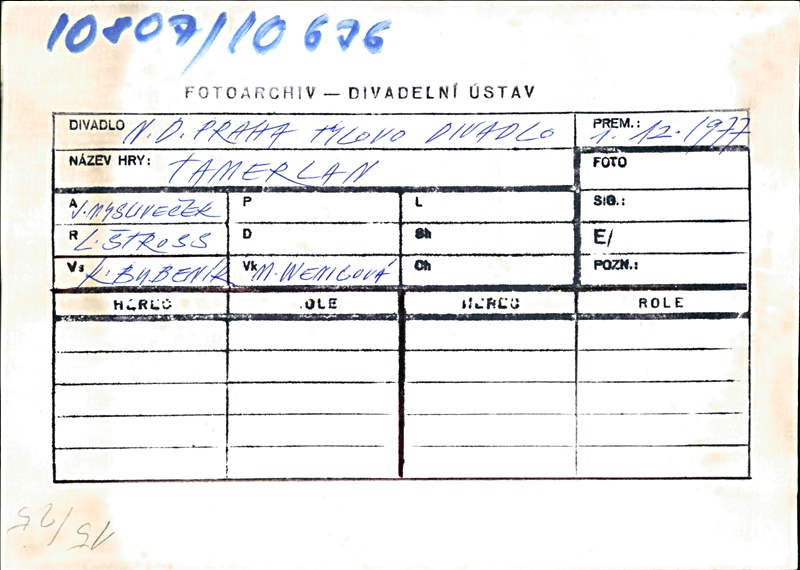 10807/10 676
FOTOARCHIV — DIVADELNÍ ÚSTAV
DIVADLO N.D. PRAHA TYLOVO DIVADLO PREM.: 1. 12. 1977
NÁZEV HRY: TAMERLAN FOTO
A J. MYSLIVEČEK P L SIG.:
R L. ŠTROSS D Sh E/
Vs K. BUBENÍK Vk M. WENIGOVÁ Ch POZN.:
HEREC ROLE HEREC ROLE
15/25